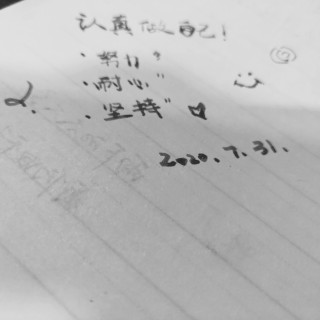 认真做自己!
·努力"
·耐心"
2. ·坚持"
2020.7.31.